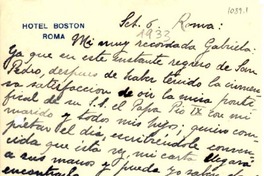 1039.1
HOTEL BOSTON
ROMA
Set. 6. Roma:
1933
Mi muy recordada Gabriela:
Ya que en este instante regreso de San
Pedro, despues de haber tenido la inmen
sa satisfaccion de oir la misa ponti
fical de su S.S. el Papa Pio IX con mi
marido y todos mis hijos, quiero com
pletar el dia escribiendole conven
cida que esta vez mi carta llegará
a sus manos y pueda yo saber
encontrarla